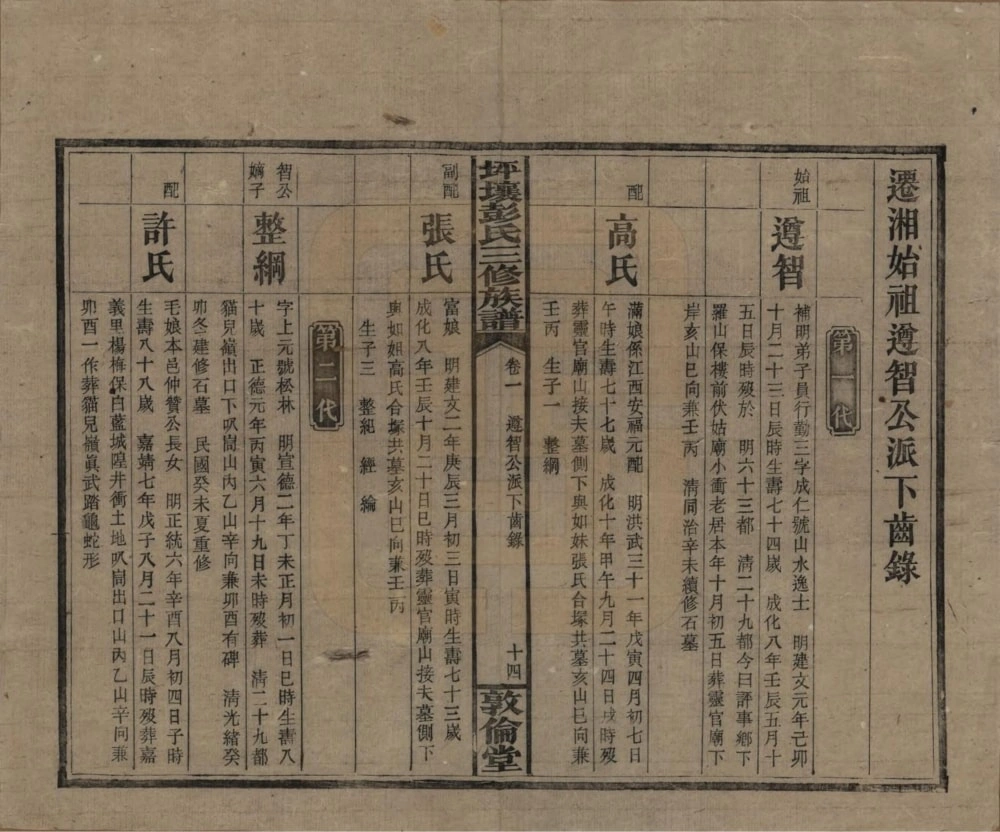 遷湘始祖遵智公派下齒錄
第一代
始祖
遵智
補明弟子員行勤三字成仁號山水逸士　明建文元年己卯
十月二十三日辰時生壽七十四歲　成化八年壬辰五月十
五日辰時歿於　明六十三都　清二十九都今曰評事鄉下
羅山保樓前伏姑廟小衝老居本年十月初五日葬靈官廟下
岸亥山巳向兼壬丙　清同治辛未續修石墓
配
高氏
滿娘係江西安福元配　明洪武三十一年戊寅四月初七日
午時生壽七十七歲　成化十年甲午九月二十四日戌時歿
葬靈官廟山接夫墓側下與如妹張氏合塚共墓亥山巳向兼
壬丙　生子一　整綱
坪壤彭氏三修族譜
卷一　遵智公派下齒錄
十四
敦倫堂
副配
張氏
富娘　明建文二年庚辰三月初三日寅時生壽七十三歲
成化八年壬辰十月二十日巳時歿葬靈官廟山接夫墓側下
與如姐高氏合塚共墓亥山巳向兼壬丙
生子三　整紀　經　綸
第二代
智公
嫡子
整綱
字上元號松林　明宣德二年丁未正月初一日巳時生壽八
十歲　正德元年丙寅六月十九日未時歿葬　清二十九都
貓兒嶺出口下㕤崗山內乙山辛向兼卯酉有碑　清光緒癸
卯冬建修石墓　民國癸未夏重修
配
許氏
毛娘本邑仲贊公長女　明正統六年辛酉八月初四日子時
生壽八十八歲　嘉靖七年戊子八月二十一日辰時歿葬嘉
義里楊梅保白藍城隍井衝土地㕤崗出口山內乙山辛向兼
卯酉一作葬貓兒嶺眞武踏龜蛇形